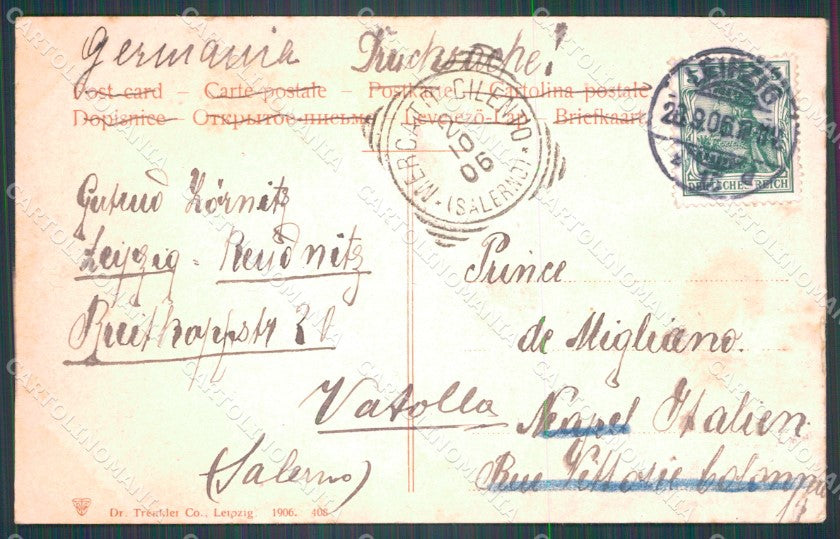 Germania Drucksache!
Post card – Carte postale – Postkarte – Cartolina postale
Dopisnice – Открытое письмо – Levelező-Lap – Briefkaart
MERCATO CILENTO
10 06
(SALERNO)
LEIPZIG
DEUTSCHES REICH
Gertrud Körnitz
Leipzig - Reudnitz
Prince
de Migliano.
Vatolla Neapel Italien
(Salerno)
Rue Vittorie Colonna
Dr. Trenkler Co., Leipzig. 1906. 408
CARTOLINOMANIA